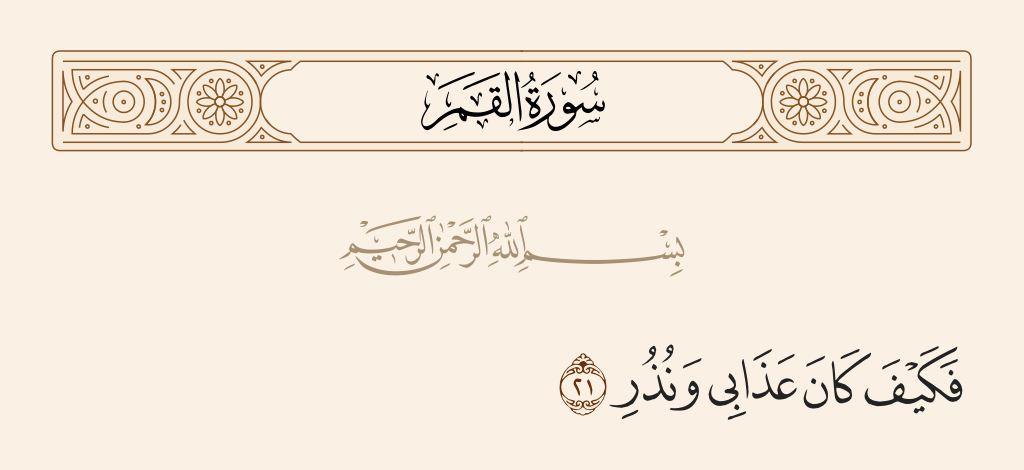 سُورَةُ القَمَرِ
بِسْمِ ٱللَّهِ ٱلرَّحْمَٰنِ ٱلرَّحِيمِ
فَكَيْفَ كَانَ عَذَابِى وَنُذُرِ ٢١